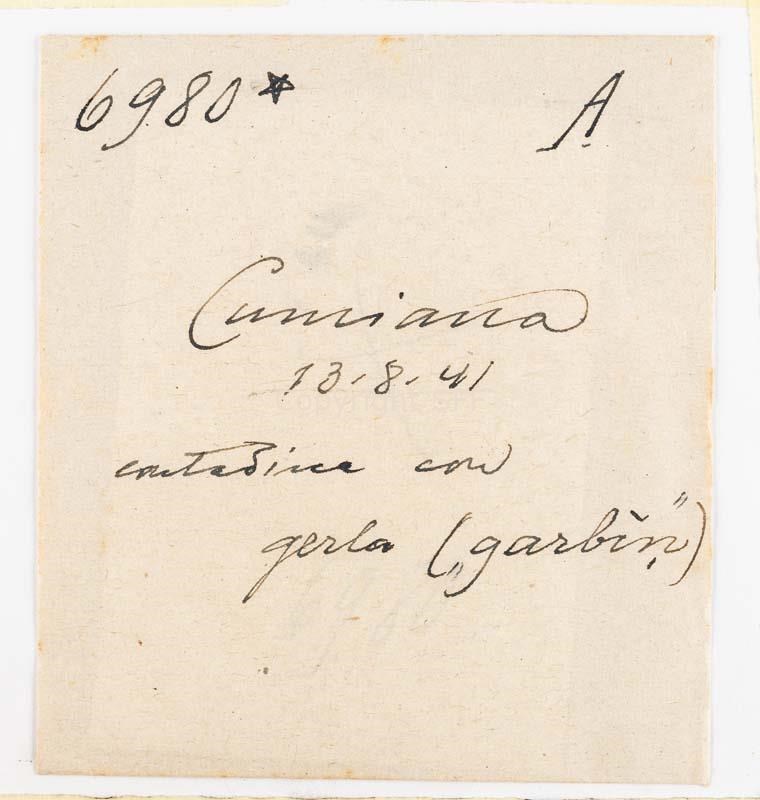 6980* A
Cumiana
13-8-41
contadina con
gerla („garbìṇ")